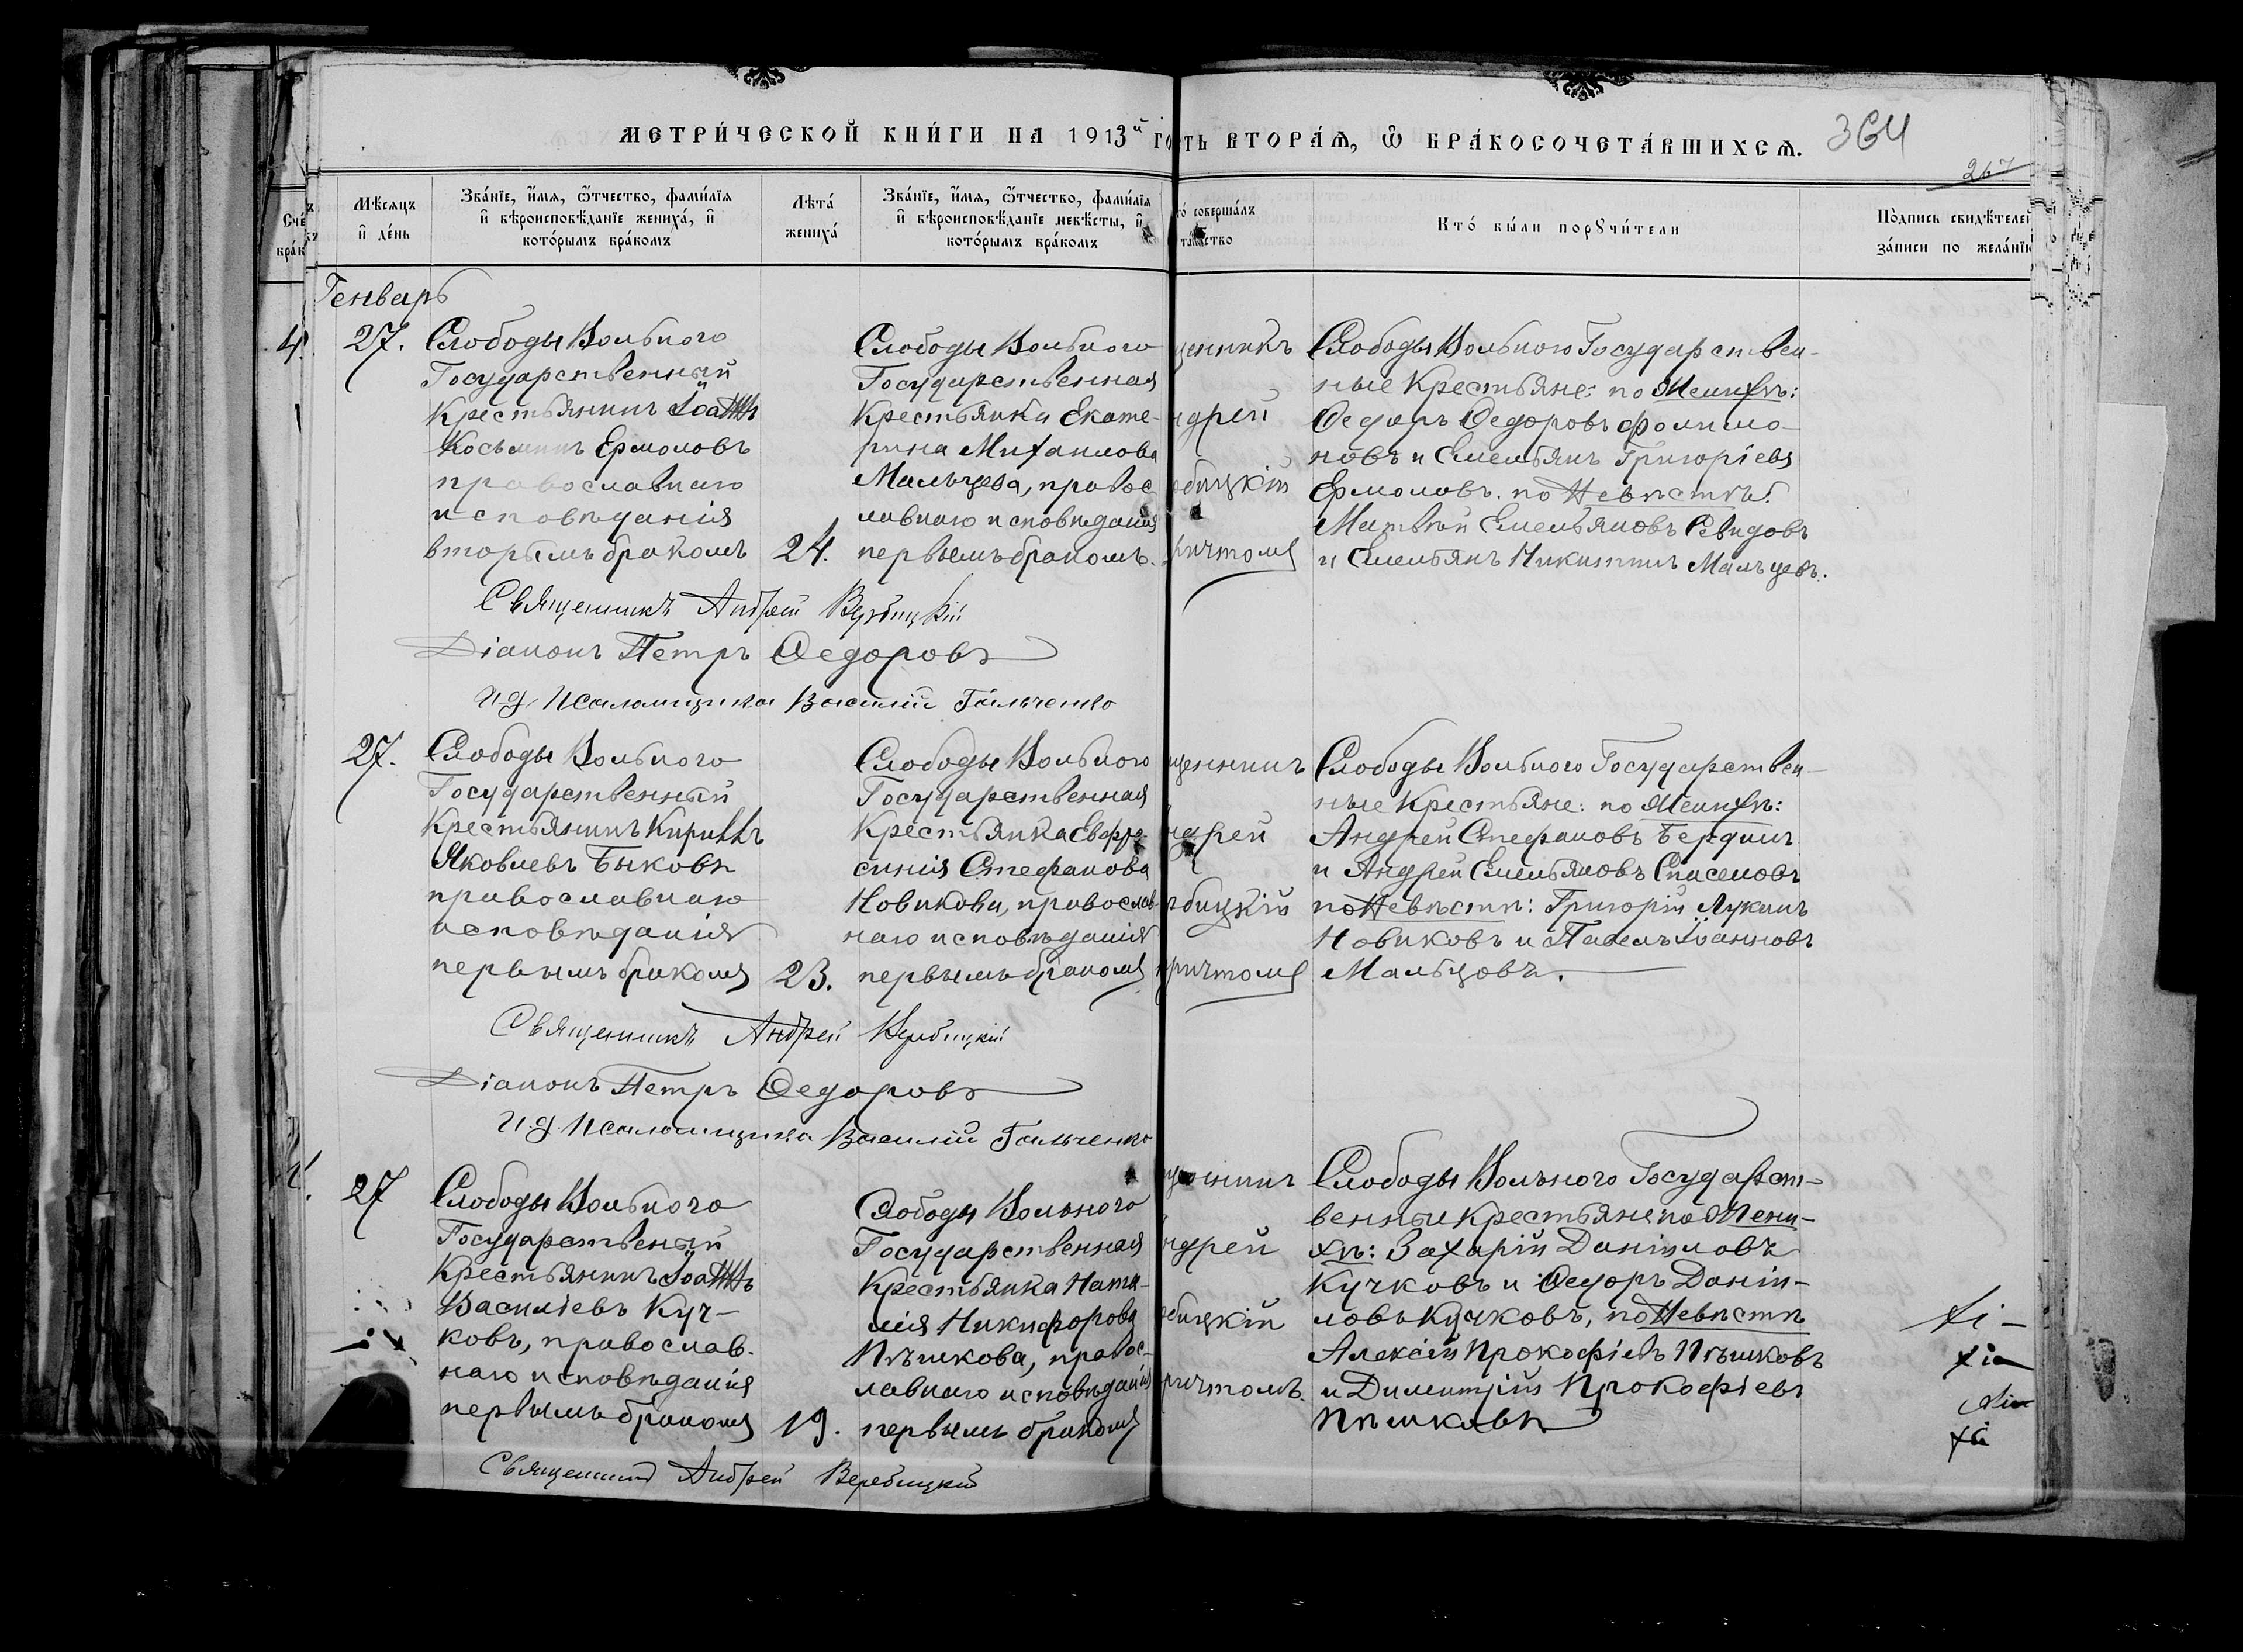 МЕТРИ́ЧЕСКОЙ КНИ́ГИ НА 1913й ГО
СТЬ ВТОРА́Ѧ, Ѿ БРА́КОСОЧЕТА́ВШИХСѦ.
364
267
Сче́
бра́к
Мѣ́сяцъ
и҆ де́нь
Зва́нїе, и҆́мя, ѻ҆́тчество, фами́лїя
и҆ вѣроисповѣ́данїе жениха̀, и҆
кото́рымъ бра́комъ
Лѣта̀
жениха̀
Зва́нїе, и҆́мя, ѻ҆́тчество, фами́лїя
и҆ вѣроисповѣ́данїе невѣ́сты, и҆
кото́рымъ бра́комъ
то̀ соверша́лъ
та́инство
Кто̀ бы́ли порꙋчи́тели
По́дпись свидѣ́телей
за́писи по жела́нїю
Генварь
4.
27.
Слободы Вольного
Государственный
Крестьянинъ Іоаннъ
Косьминъ Ермоловъ
православнаго
исповѣданія
вторымъ бракомъ
24.
Слободы Вольного
Государственная
Крестьянка Екате-
рина Михаилова
Мальцева, правос
лавнаго исповѣданія
первымъ бракомъ.
щенникъ
ндрей
рбицкій
ричтомъ
Слободы Вольного Государствен-
ные Крестьяне: по Женихѣ:
Ѳедоръ Ѳедоровъ Филимо-
новъ и Емельянъ Григоріевъ
Ермоловъ. по Невѣстѣ:
Матвѣй Емельяновъ Севидовъ
и Емельянъ Никитинъ Мальцевъ.
Священникъ Андрей Вербицкій
Діаконъ Петръ Ѳедоровъ
И.д. Псаломщика Василій Гальченко
27.
Слободы Вольного
Государственный
Крестьянинъ Кириллъ
Яковлевъ Быковъ
православнаго
исповѣданія
первымъ бракомъ
23.
Слободы Вольного
Государственная
Крестьянка Евфро-
синія Стефанова
Новикова, православ
наго исповѣданія
первымъ бракомъ
щенникъ
ндрей
рбицкій
причтомъ
Слободы Вольного Государствен-
ные Крестьяне: по Женихѣ:
Андрей Стефановъ Бердинъ
и Андрей Емельяновъ Спасеновъ
по Невѣстѣ: Григорій Лукинъ
Новиковъ и Павелъ Іоанновъ
Мальцовъ.
Священникъ Андрей Вербицкій
Діаконъ Петръ Ѳедоровъ
И.д. Псаломщика Василій Гальченко
27
Слободы Вольного
Государственый
Крестьянинъ Іоаннъ
Василіевъ Куч-
ковъ, православ.
наго исповѣданія
первымъ бракомъ
19.
Слободы Вольного
Государственная
Крестьянка Ната-
лія Никифорова
Пѣшкова, правос-
лавнаго исповѣданія
первымъ бракомъ
щенникъ
ндрей
рбицкій
ричтомъ.
Слободы Вольного Государст-
венные Крестьяне по Жени-
хѣ: Захарій Даніиловъ
Кучковъ и Ѳедоръ Даніи-
ловъ Кучковъ, по Невѣстѣ
Алексій Прокофіевъ Пѣшковъ
и Димитрій Прокофіевъ
Пѣшковъ
Священникъ Андрей Вербицкій